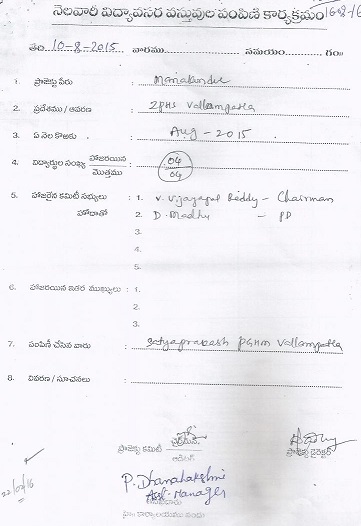 నెలవారీ విద్యావసర వస్తువుల పంపిణీ కార్యక్రమం
తేది. 10-8-2015 వారము సమయం గం॥
1. ప్రాజెక్టు పేరు : Manabandu
2. ప్రదేశము / ఆవరణ : ZPHS Vallampatla
3. ఏ నెల కొఱకు : Aug - 2015
4. విద్యార్థుల సంఖ్య హాజరయిన : 04
మొత్తము 04
5. హాజరైన కమిటీ సభ్యులు : 1. V. Vijayapal Reddy - Chairman
హోదాతో 2. D. Madhu - PD
3.
4.
5.
6. హాజరయిన ఇతర ముఖ్యులు : 1.
2.
3.
7. పంపిణీ చేసిన వారు : Satyaprakash PGHM Vallampatla
8. వివరణ / సూచనలు :
ప్రాజెక్టు కమిటీ ఛైర్మెన్ ప్రాజెక్టు డైరెక్టర్
ఆడిటర్
P. Dhanalakshmi
Asst. Manager